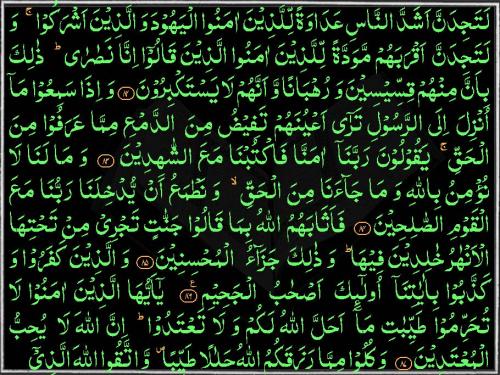 لَتَجِدَنَّ اَشَدَّ النَّاسِ عَدَاوَةً لِّلَّذِيْنَ اٰمَنُوا الْيَهُوْدَ وَالَّذِيْنَ اَشْرَكُوْا ۚ وَ
لَتَجِدَنَّ اَقْرَبَهُمْ مَّوَدَّةً لِّلَّذِيْنَ اٰمَنُوا الَّذِيْنَ قَالُوْٓا اِنَّا نَصٰرٰى ؕ ذٰلِكَ
بِاَنَّ مِنْهُمْ قِسِّيْسِيْنَ وَ رُهْبَانًا وَّ اَنَّهُمْ لَا يَسْتَكْبِرُوْنَ ﴿۸۲﴾ وَ اِذَا سَمِعُوْا مَاۤ
اُنْزِلَ اِلَى الرَّسُوْلِ تَرٰۤى اَعْيُنَهُمْ تَفِيْضُ مِنَ الدَّمْعِ مِمَّا عَرَفُوْا مِنَ
الْحَقِّ ۚ يَقُوْلُوْنَ رَبَّنَاۤ اٰمَنَّا فَاكْتُبْنَا مَعَ الشّٰهِدِيْنَ ﴿۸۳﴾ وَ مَا لَنَا لَا
نُؤْمِنُ بِاللّٰهِ وَ مَا جَآءَنَا مِنَ الْحَقِّ ۙ وَ نَطْمَعُ اَنْ يُّدْخِلَنَا رَبُّنَا مَعَ
الْقَوْمِ الصّٰلِحِيْنَ ﴿۸۴﴾ فَاَثَابَهُمُ اللّٰهُ بِمَا قَالُوْا جَنّٰتٍ تَجْرِيْ مِنْ تَحْتِهَا
الْاَنْهٰرُ خٰلِدِيْنَ فِيْهَا ؕ وَ ذٰلِكَ جَزَآءُ الْمُحْسِنِيْنَ ﴿۸۵﴾ وَ الَّذِيْنَ كَفَرُوْا وَ
كَذَّبُوْا بِاٰيٰتِنَاۤ اُولٰٓئِكَ اَصْحٰبُ الْجَحِيْمِ ﴿۸۶﴾ يٰۤاَيُّهَا الَّذِيْنَ اٰمَنُوْا لَا
تُحَرِّمُوْا طَيِّبٰتِ مَاۤ اَحَلَّ اللّٰهُ لَكُمْ وَ لَا تَعْتَدُوْا ؕ اِنَّ اللّٰهَ لَا يُحِبُّ
الْمُعْتَدِيْنَ ﴿۸۷﴾ وَ كُلُوْا مِمَّا رَزَقَكُمُ اللّٰهُ حَلٰلًا طَيِّبًا ۪ وَّ اتَّقُوا اللّٰهَ الَّذِيْۤ